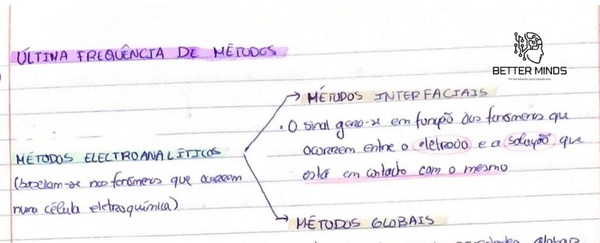 ÚLTIMA FREQUÊNCIA DE MÉTODOS
BETTER MINDS
MÉTODOS INTERFACIAIS
• O sinal gera-se em função dos fenómenos que
ocorrem entre o eletrodo e a solução que
está em contacto com o mesmo
MÉTODOS ELECTROANALÍTICOS
(baseiam-se nos fenómenos que ocorrem
numa célula eletroquímica)
MÉTODOS GLOBAIS
globais